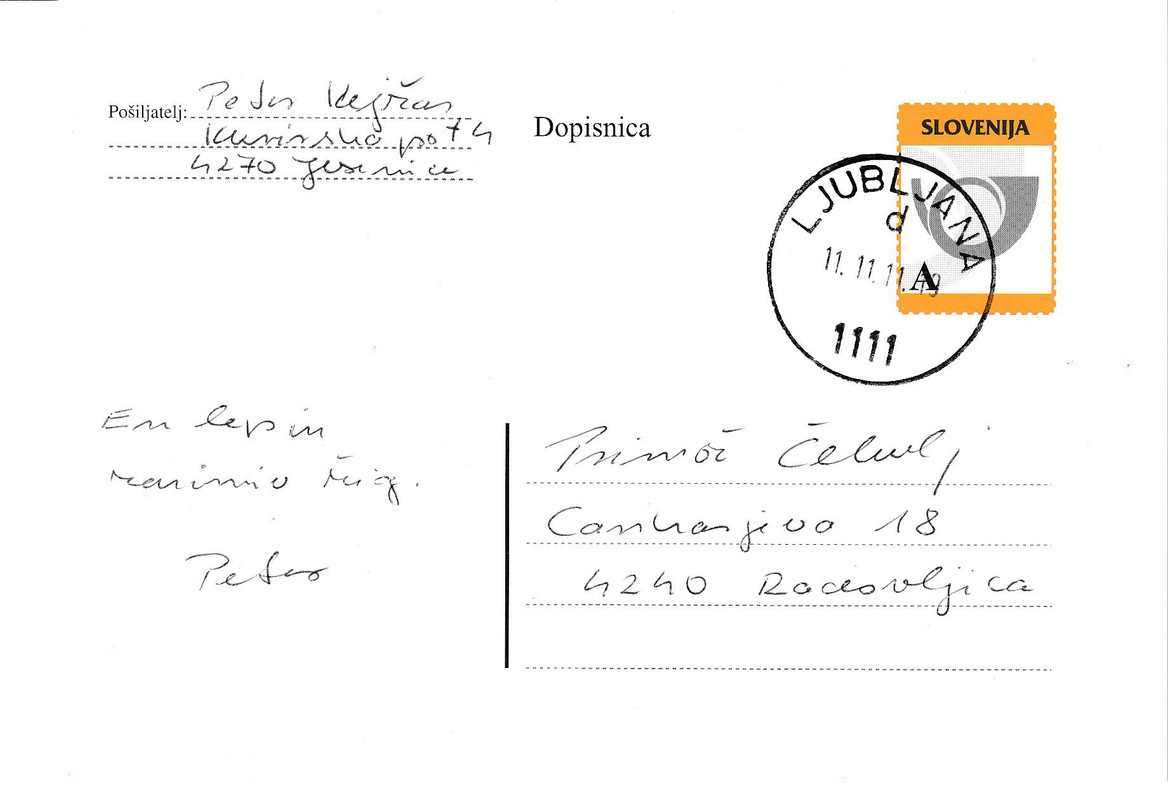 Pošiljatelj: Peter Kejžar
Kurirska pot 4
4270 Jesenice
Dopisnica
SLOVENIJA
LJUBLJANA
d
11.11.11.
A
1111
En lep in
zanimiv žig.
Peter
Primož Čebulj
Cankarjeva 18
4240 Radovljica